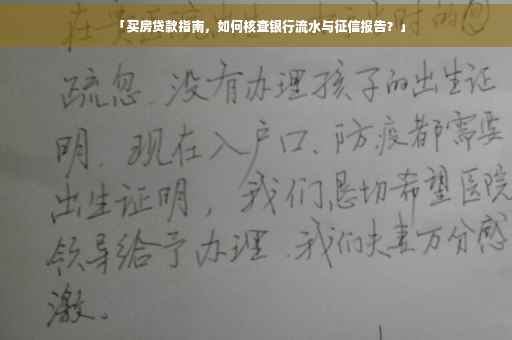 「买房贷款指南，如何核查银行流水与征信报告？」
疏忽、没有办理孩子的出生证
明、现在入户口、防疫都需要
出生证明，我们恳切希望医院
领导给予办理、我们夫妻万分感
激。